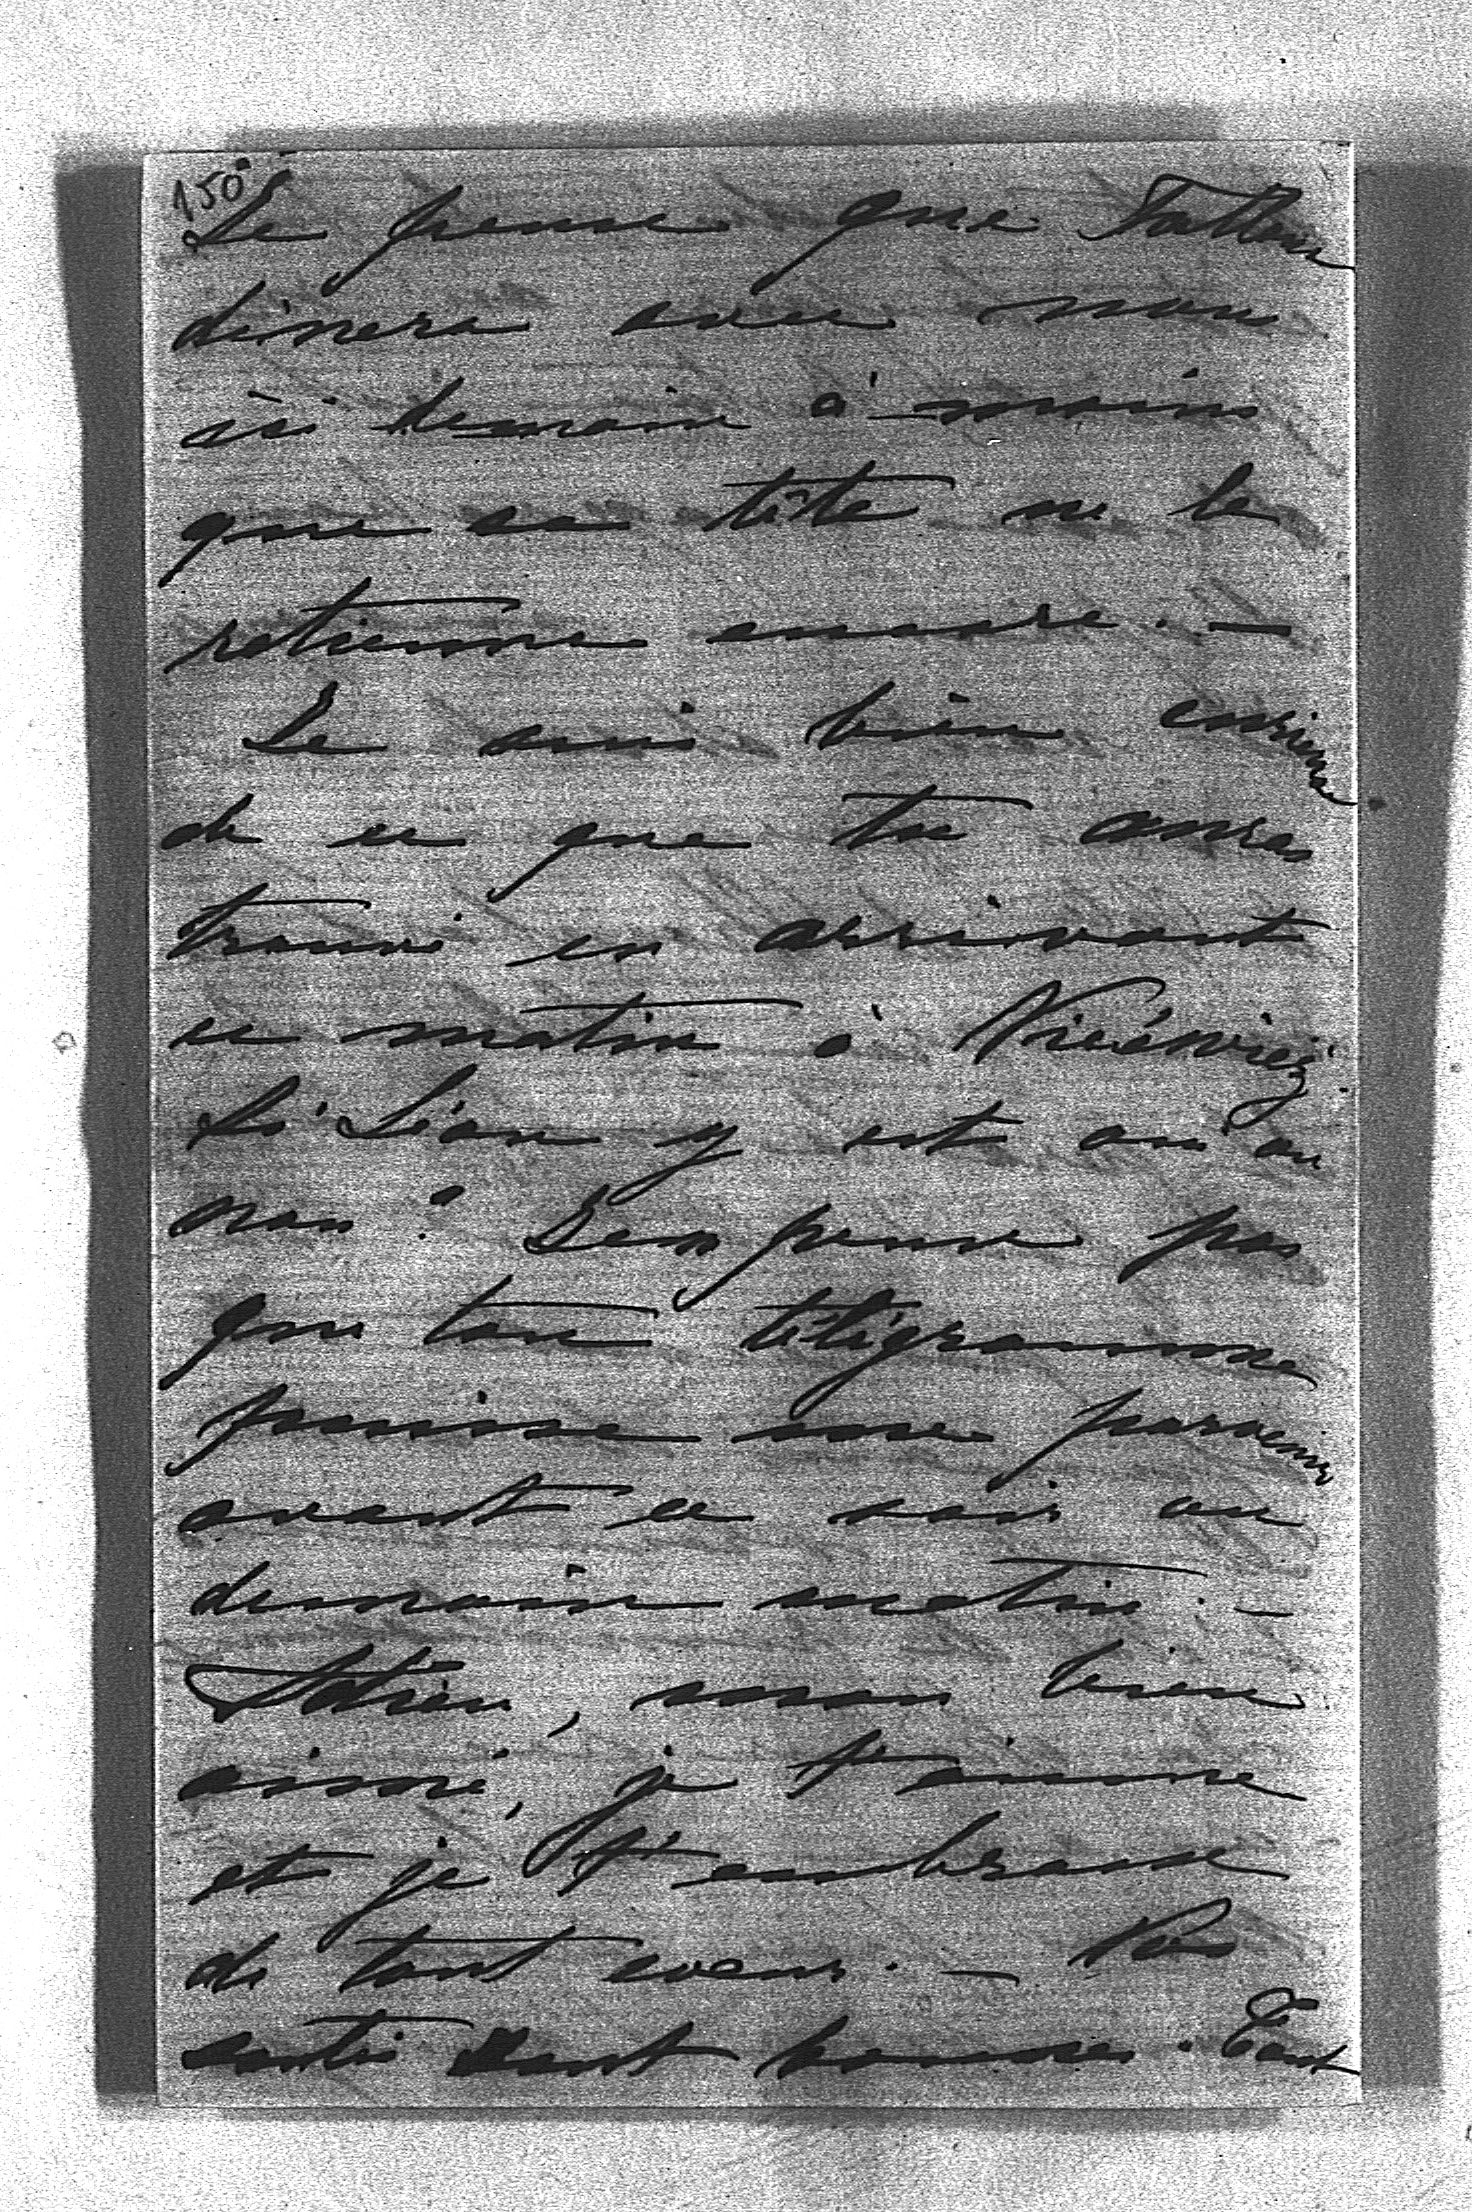 150
Je pense que
dinera avec nous
ici demain à moins
que sa tête ne le
retienne encore. —
Je suis bien curieuse
de ce que tu auras
trouvé en arrivant
ce matin à
Si Léon y est ou ou
non? Je ne pense pas
que ton télégramme
puisse me parvenir
avant ce soir ou
demain matin. —
Adieu, mon bien
aimé, je t'aime
et je t'embrasse
de tout coeur. — Nos
santés sont bonnes. Tout